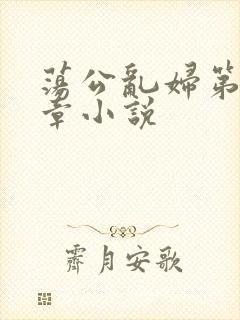 蕩公亂婦第
章小說
霽月安歌